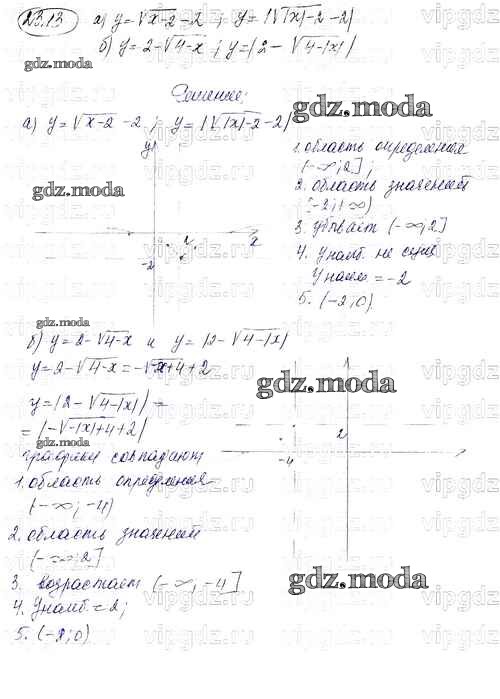 23.13 а) y = √x-2 - 2 ; y = |√|x|-2 - 2|
б) y = 2 - √4-x ; y = |2 - √4-|x||
Решение:
gdz.moda
а) y = √x-2 - 2 ; y = |√|x|-2 - 2|
y
1. область определения
(-∞; 2];
gdz.moda
2. область значений
[-2; +∞)
3. убывает (-∞; 2]
x
-2
4. yнаиб. не сущ.
yнаим = -2
5. (-2; 0)
gdz.moda
б) y = 2 - √4-x и y = |2 - √4-|x||
y = 2 - √4-x = -√-x+4 + 2
gdz.moda
y = |2 - √4-|x|| =
= |-√-|x|+4 + 2|
2
gdz.moda
-4
графики совпадают
1. область определения
(-∞; -4)
2. область значений
(-∞; 2]
3. возрастает (-∞; -4]
gdz.moda
4. yнаиб. = 2;